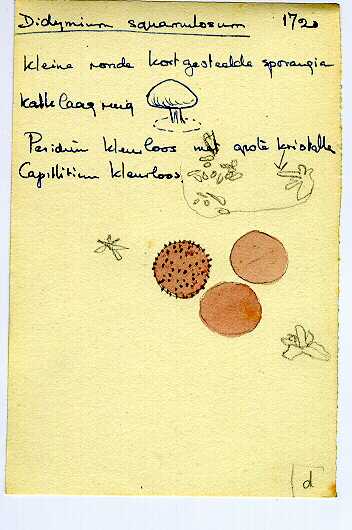 Didymium squamulosum 1720
kleine ronde kortgesteelde sporangia
kalklaag ruig
Peridium kleurloos met grote kristallen
Capillitium kleurloos
d